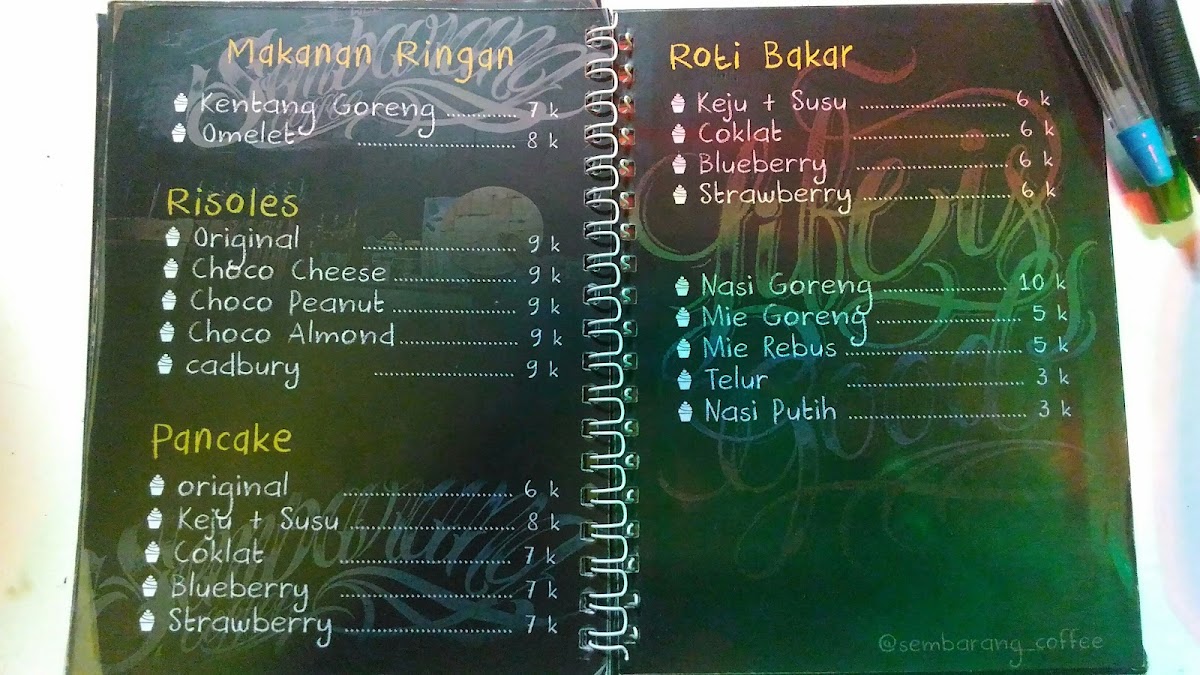 Makanan Ringan
Kentang Goreng .............. 7 k
Omelet .............. 8 k
Risoles
Original .............. 9 k
Choco Cheese .............. 9 k
Choco Peanut .............. 9 k
Choco Almond .............. 9 k
cadbury .............. 9 k
Pancake
original .............. 6 k
Keju + Susu .............. 8 k
Coklat .............. 7 k
Blueberry .............. 7 k
Strawberry .............. 7 k
Roti Bakar
Keju + Susu .............. 6 k
Coklat .............. 6 k
Blueberry .............. 6 k
Strawberry .............. 6 k
Nasi Goreng .............. 10 k
Mie Goreng .............. 5 k
Mie Rebus .............. 5 k
Telur .............. 3 k
Nasi Putih .............. 3 k
Life is
Good
@sembarang_coffee